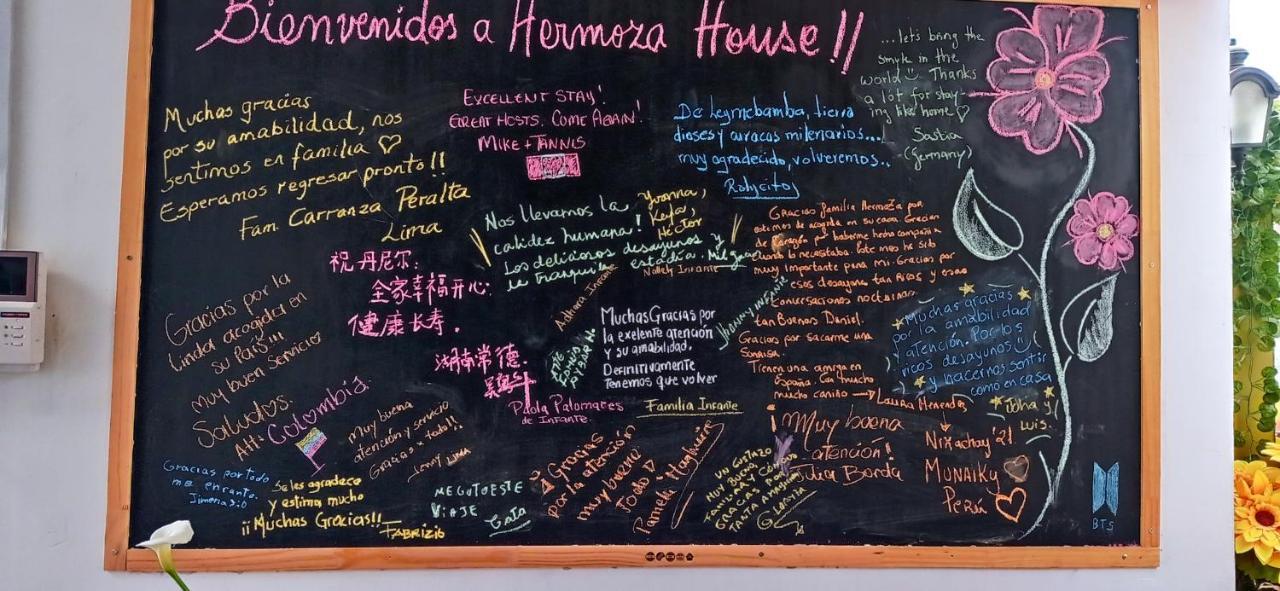 Bienvenidos a Hermoza House!!
Muchas gracias
por su amabilidad, nos
sentimos en familia ♡
Esperamos regresar pronto!!
Fam. Carranza Peralta
Lima
EXCELLENT STAY!
GREAT HOSTS. COME AGAIN!
MIKE + TANNIS
De Leymebamba, tierra
dioses y curacas milenarios...
muy agradecido, volveremos..
Rabycitos
...let's bring the
smyle in the
world Thanks
a lot for stay-
ing like home ♡
Saskia
(Germany)
Nos llevamos la
calidez humana!
Los deliciosos desayunos y
la tranquila estadía. Mil
Yvonna,
Keyla,
Héctor
Nolely Infante
祝丹尼尔:
全家幸福开心.
健康长寿.
湖南常德.
Gracias por la
linda acogida en
su País!!!
muy buen servicio
Saludos.
Att: Colombia.
Gracias familia Hermoza por
de corazón por haberme hecho compañía
cuando lo necesitaba. Este mes ha sido
muy importante para mi. Gracias por
esos desayunos tan Ricos y esas
Conversaciones nocturnas
tan Buenas Daniel.
Gracias por sacarme una
Sonrisa.
Tienen una amiga en
España. Con mucho
mucho cariño → Laura Menendes
Muchas Gracias por
la exelente atención
y su amabilidad,
Definitivamente
Tenemos que volver
Familia Infante
Paola Palomares
de Infante
Jhanny Infante
Muchas gracias
por la amabilidad
y atención. Por los
ricos desayunos
y hacernos sentir
como en casa
Joha y
Luis.
Muy buena
atención y servicio
Gracias x todo!!
Jenny Lima
Gracias por todo
me encanto.
Jimena
Se les agradece
y estima mucho
¡¡Muchas Gracias!!
FABRIZIO
ME GUTO ESTE
VIAJE
Gracias
por la atención
muy bueno
todo
Pamela
UN GUSTAZO
MUY BUENA
GRACIAS POR
TANTA
Muy buena
atención!
Julia Borda
Nixachay '21
MUNAIKY
Perú
BTS